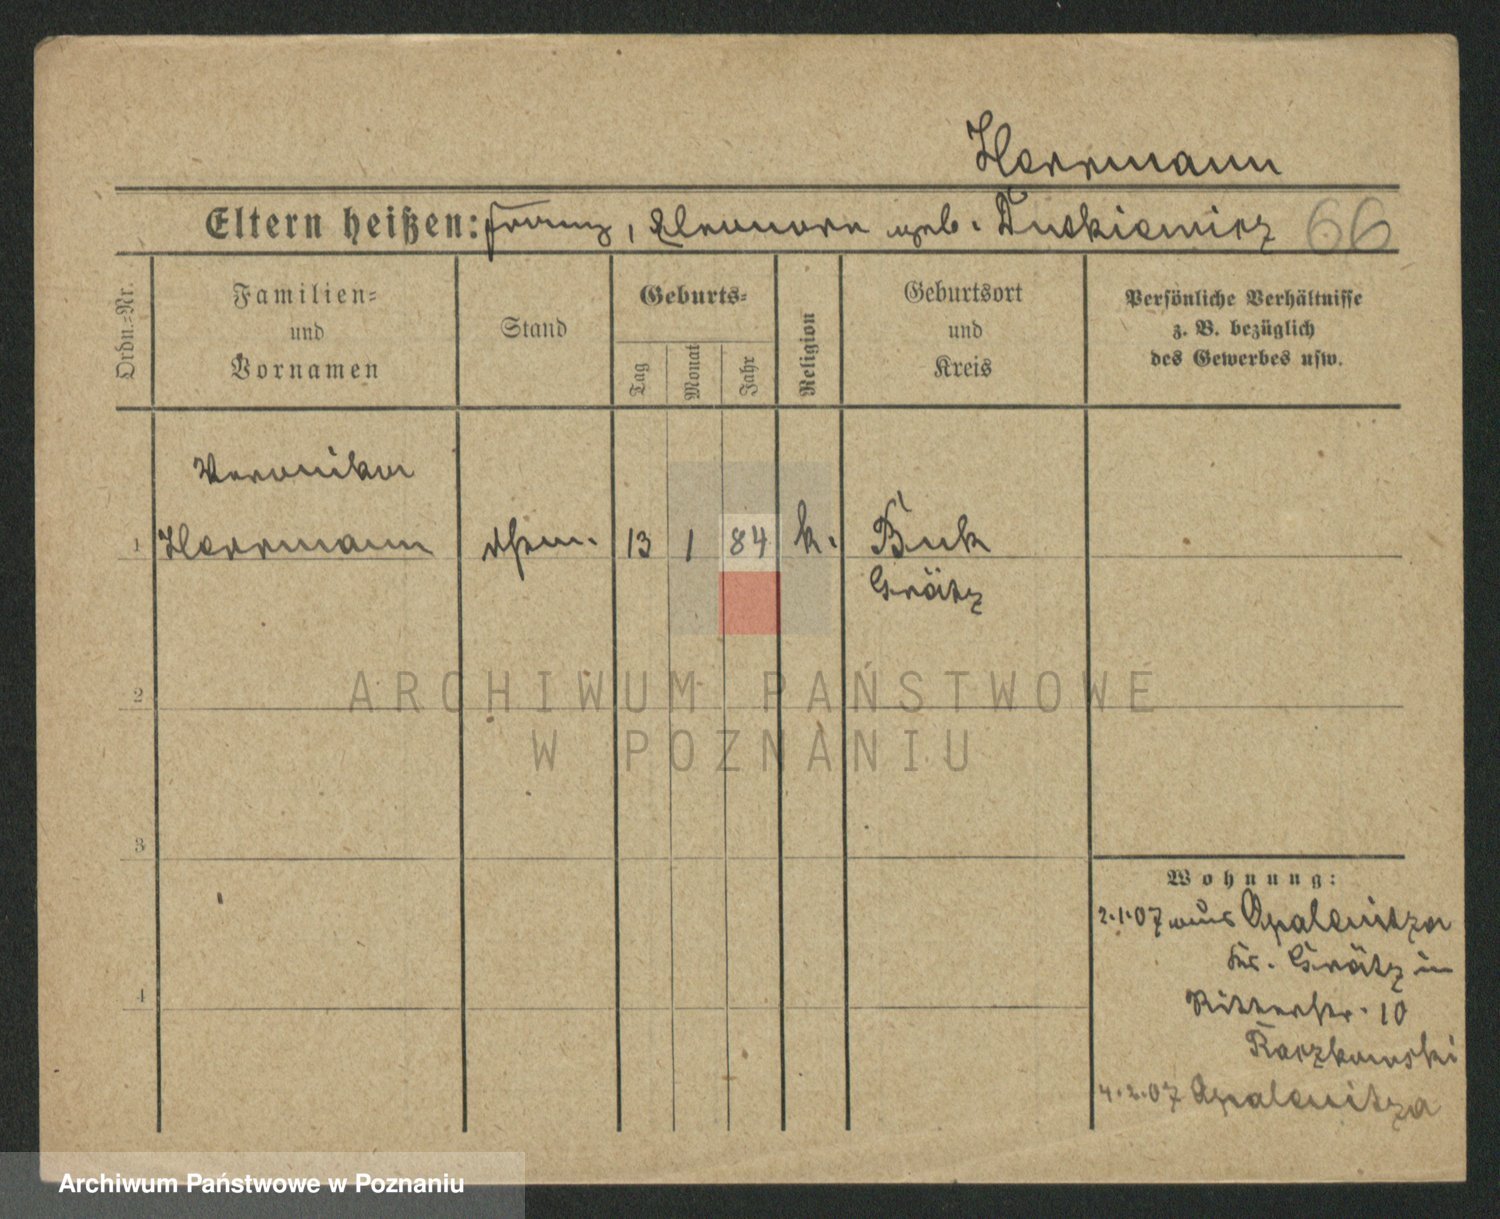 Herrmann
Eltern heißen: Franz, Eleonore geb. Tutkiewicz 66
Ordn.-Nr.
Familien-
und
Vornamen
Stand
Geburts-
Tag
Monat
Jahr
Religion
Geburtsort
und
Kreis
Persönliche Verhältnisse
z. B. bezüglich
des Gewerbes usw.
Veronika
1 Herrmann 13 1 84 k. Buk
Grätz
2
3
4
Wohnung:
2.1.07 aus Opalenitza
Kr. Grätz in
Ritterstr. 10
Raczkowski
4.2.07 Opalenitza
ARCHIWUM PAŃSTWOWE
W POZNANIU
Archiwum Państwowe w Poznaniu